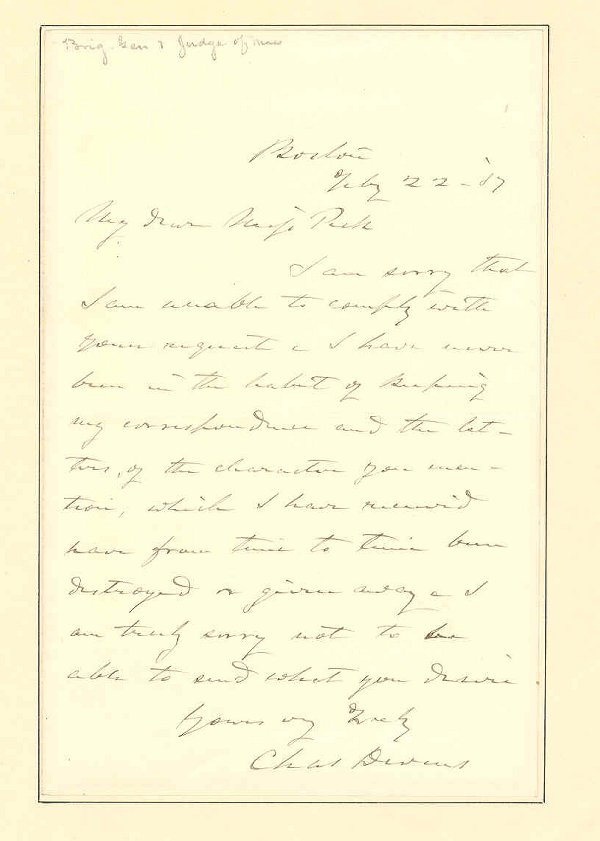 Brig. Gen & Judge of Mass
Boston
Feby 22 - '87
My dear Miss Peck
I am sorry that
I am unable to comply with
your request - I have never
been in the habit of keeping
my correspondence and the let-
ters, of the character you men-
tion, which I have received
have from time to time been
destroyed or given away - I
am truly sorry not to be
able to send what you desire
Yours vy truly
Chas Devens